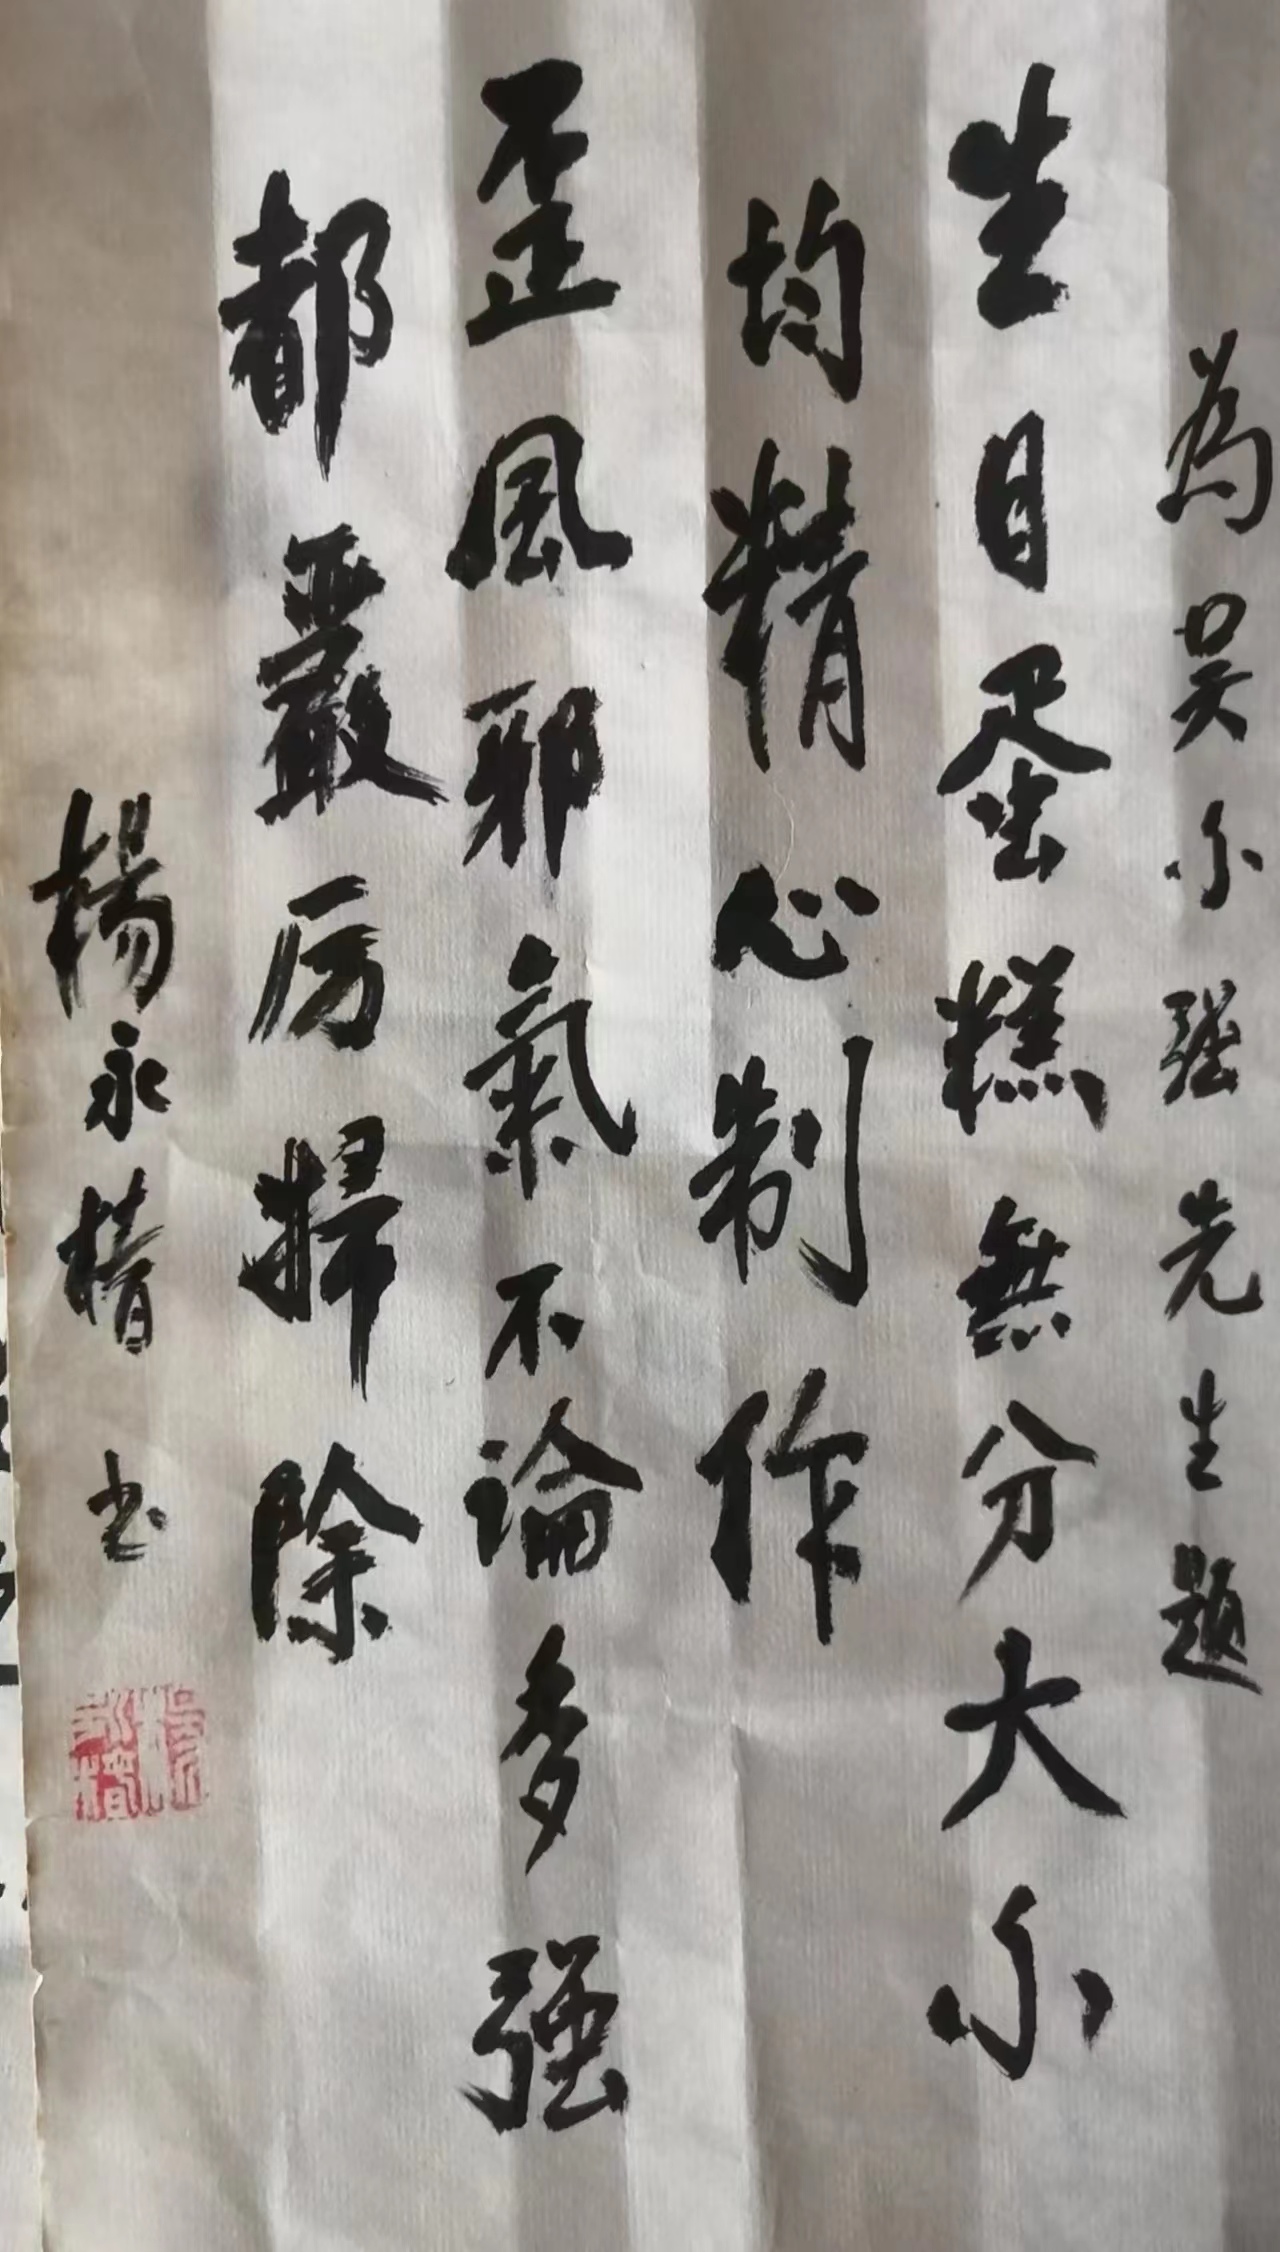 為吴小强先生题
生日蛋糕無分大小
均精心制作
歪風邪氣不論多强
都嚴厉掃除
楊永椿书